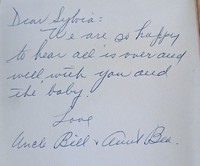 Dear Sylvia:
We are so happy
to hear all is over and
well with you and
the baby.
Love
Uncle Bill & Aunt Bea.